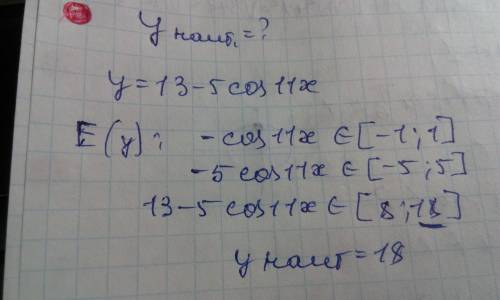 y наиб. = ?
y = 13 - 5 cos 11x
E(y): - cos 11x ∈ [-1; 1]
-5 cos 11x ∈ [-5; 5]
13 - 5 cos 11x ∈ [8; 18]
y наиб = 18